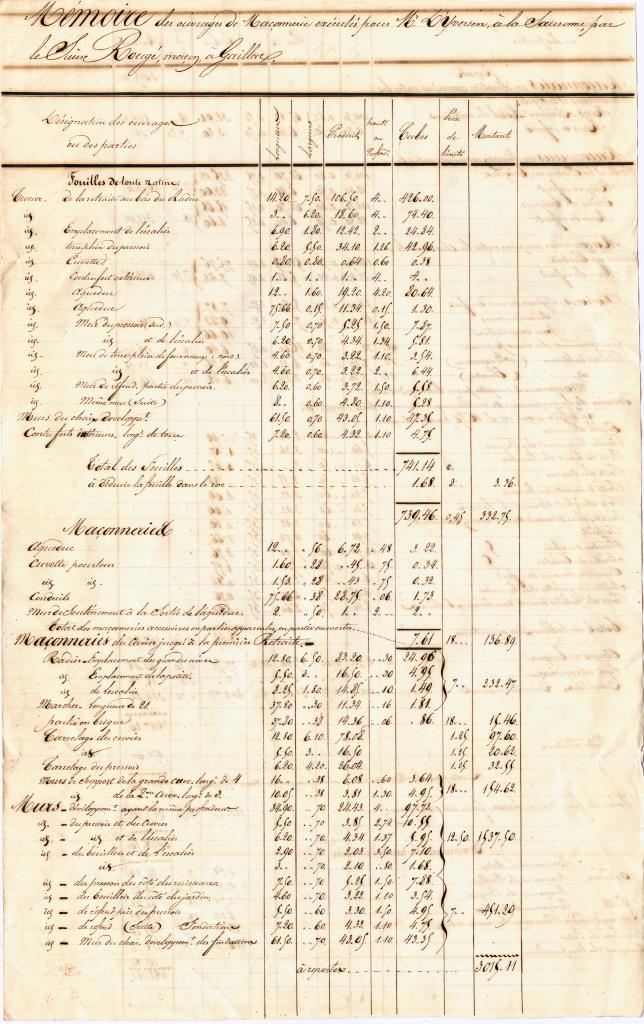 Mémoire des ouvrages de Maçonnerie exécutés pour Mr. D'Yversen, à la Saurome, par
le Sieur Rougé, maçon, à Gaillac
Désignation des ouvrages ou des parties Longueurs Largeurs Produits haute ou Profond. Cubes Prix de l'unité Montant
Fouilles de toute Nature
Cuvier. de la retraite au bas du Radier 14.20 7.50 106.50 4.. 426.00
id. 3.. 6.20 18.60 4.. 74.40
id. Emplacement de l'escalier 6.90 1.80 12.42 2.. 24.84
id. terreplein du pressoir 6.20 5.50 34.10 1.26 42.96
id. Cuvette 0.80 0.80 0.64 0.60 0.38
id. Contrefort extérieur 1.. 1.. 1.. 4.. 4..
id. Aqueduc 12.. 1.60 19.20 4.20 80.64
id. Aqueduc 75.66 0.15 11.34 0.15 1.30
id. Mur du pressoir (sud.) 7.50 0.70 5.25 1.50 7.87
id. id. et de l'escalier 6.20 0.70 4.34 1.34 5.81
id. Mur de terreplein du fourneaux (nord) 4.60 0.70 3.22 1.10 3.54
id. id. et de l'escalier 4.60 0.70 3.22 2.. 6.44
id. Mur de refend, partie du pressoir 6.20 0.60 3.72 1.50 5.58
id. Même mur (Suite) 8.. 0.60 4.80 1.10 5.28
Murs du chaix, developpt. 61.50 0.70 43.05 1.10 47.35
Contreforts intérieurs, longr. de tous 7.20 0.60 4.32 1.10 4.75
Total des Fouilles 741.14
à déduire la fouille dans le roc 1.68 2.. 3.36
739.46 0.45 332.75
Maçonneries
Aqueduc 12.. .. 56 6.72 .. 48 3.22
Cuvette pourtour 1.60 .. 28 .. 45 .. 75 0.34
id. id. 1.53 .. 28 .. 43 .. 75 0.32
Conduits 75.66 .. 38 28.75 .. 06 1.73
Mur de Soutènement à la Sortie de l'aqueduc 2.. .. 50 1.. 2.. 2..
Total des maçonneries accessoires en partie apparentes, en partie couvertes. 7.61 18.. 136.89
Maçonneries du Cuvier jusqu'à la première Retraite
Radier Emplacement des grands cuves 12.80 6.50 83.20 .. 30 24.96
id. Emplacement de la petite 5.50 3.. 16.50 .. 30 4.95 7.. 232.47
id. de l'escalier 8.25 1.80 14.85 .. 10 1.49
Marches longueur de 21 37.80 .. 30 11.34 .. 16 1.81
partie en brique 37.80 .. 38 14.36 .. 06 .. 86 18.. 15.46
Carrelage du cuvier 12.80 6.10 78.08 1.25 97.60
id. 5.50 3.. 16.50 1.25 20.62
Carrelage du pressoir 6.20 4.20 26.04 1.25 32.55
Murs de Support de la grande cuve, longr. de 4 16.. .. 38 6.08 .. 60 3.64
id. de la 2me Cuve, longr. de 3. 10.05 .. 38 3.81 1.30 4.95 18.. 154.62
Murs - développemt. ayant la même profondeur 34.90 .. 70 24.43 4.. 97.72
id. - du pressoir et du Cuvier 5.50 .. 70 3.85 2.74 10.55
id. - id. et de l'escalier 6.20 .. 70 4.34 1.37 5.95 12.50 1537.50
id. - du bouilleur et de l'escalier 2.90 .. 70 2.03 3.50 7.10
id. 3.. .. 70 2.10 .. 80 1.68
id. - du pressoir du côté du ruisseau 7.50 .. 70 5.25 1.50 7.88
id. - du bouilleur du côté du jardin 4.60 .. 70 3.22 1.10 3.54
id. - de refend près du pressoir 5.50 .. 60 3.30 1.50 4.95 7.. 451.29
id. - de refend (Suite) Fondations 7.20 .. 60 4.32 1.10 4.75
id. - Mur du chai, developpemt. des fondations 61.50 .. 70 43.05 1.10 43.35
à reporter 3015.11